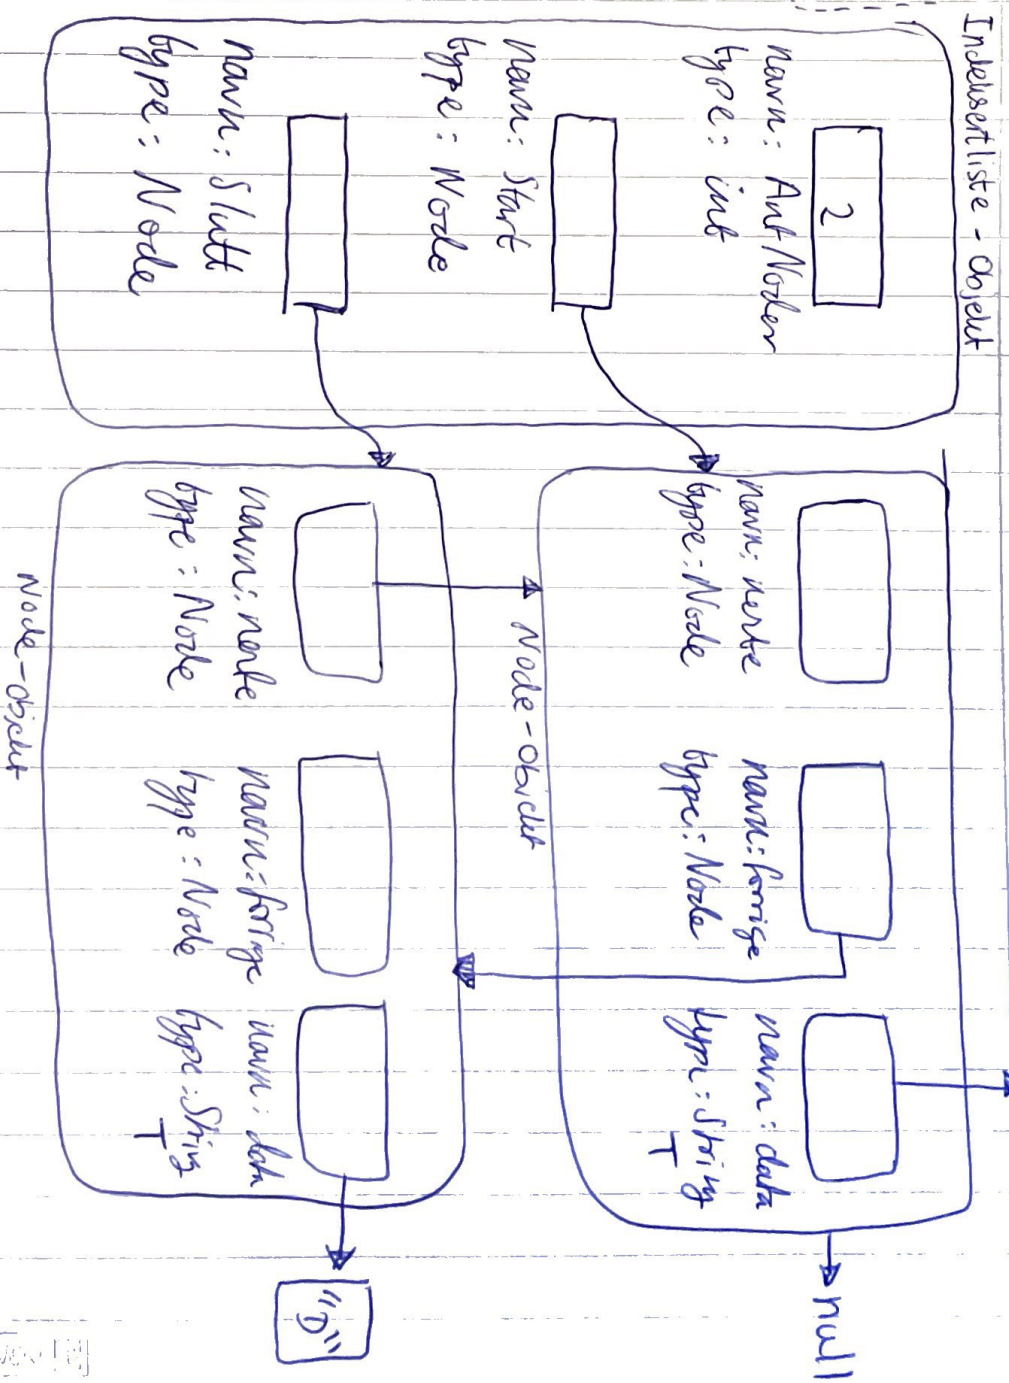 Indeksertliste - objekt
2
navn: AntNoder
type: int
navn: Start
type: Node
navn: Slutt
type: Node
navn: neste
type: Node
navn: forrige
type: Node
navn: data
type: String
T
null
Node-objekt
navn: neste
type: Node
navn: forrige
type: Node
navn: data
type: String
T
"D"
Node-objekt